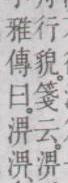 行貌。箋云。淠
雅傳曰。淠淠